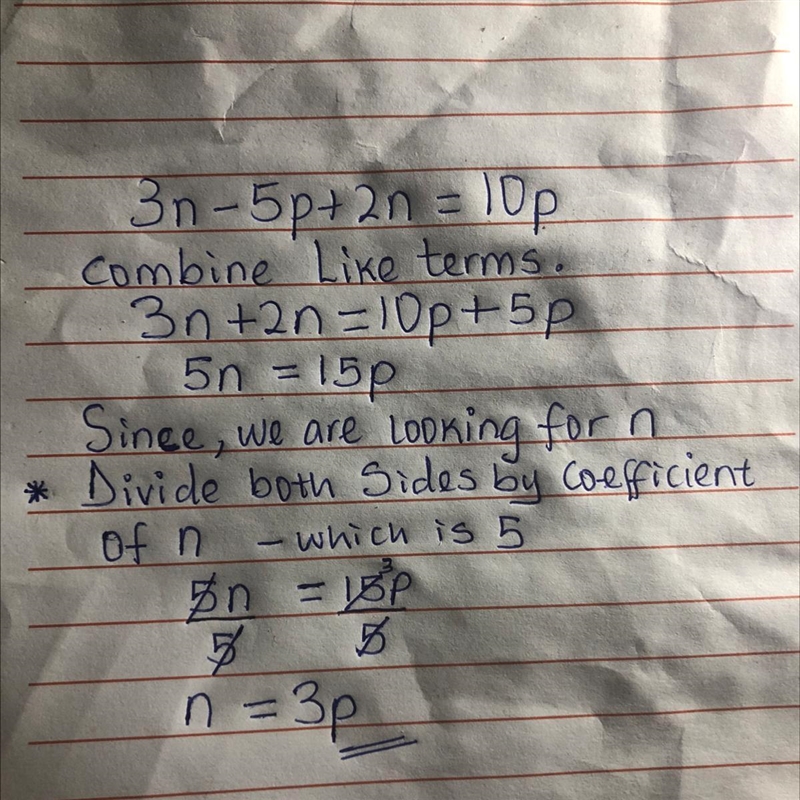 3n - 5p + 2n = 10p
combine Like terms.
3n + 2n = 10p + 5p
5n = 15p
Since, we are looking for n
* Divide both Sides by Coefficient
of n - which is 5
5n/5 = 15p/5 3
n = 3p